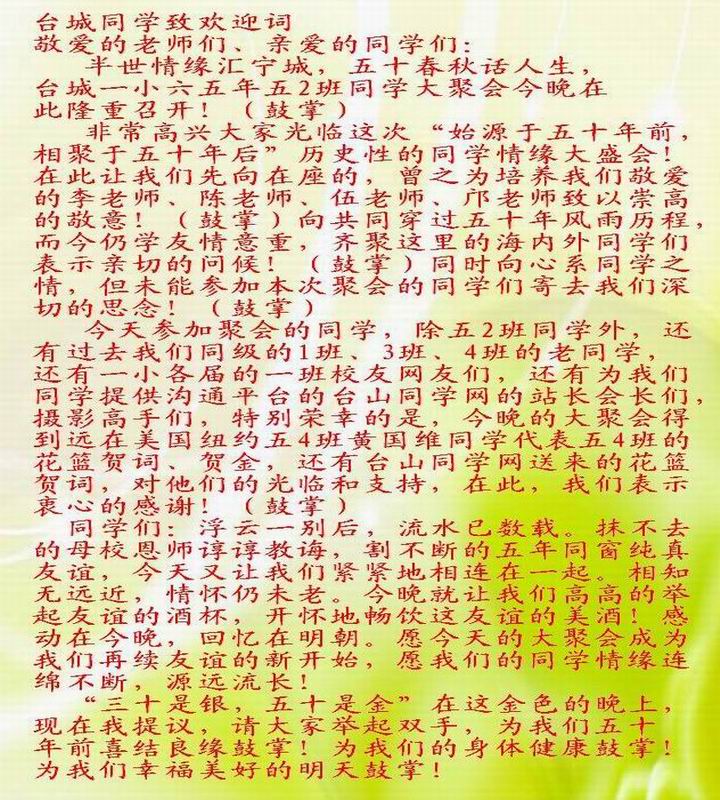 台城同学致欢迎词
敬爱的老师们、亲爱的同学们：
半世情缘汇宁城，五十春秋话人生，
台城一小六五年五2班同学大聚会今晚在
此隆重召开！（鼓掌）
非常高兴大家光临这次“始源于五十年前，
相聚于五十年后”历史性的同学情缘大盛会！
在此让我们先向在座的，曾之为培养我们敬爱
的李老师、陈老师、伍老师、邝老师致以崇高
的敬意！（鼓掌）向共同穿过五十年风雨历程，
而今仍学友情意重，齐聚这里的海内外同学们
表示亲切的问候！（鼓掌）同时向心系同学之
情，但未能参加本次聚会的同学们寄去我们深
切的思念！（鼓掌）
今天参加聚会的同学，除五2班同学外，还
有过去我们同级的1班、3班、4班的老同学，
还有一小各届的一班校友网友们，还有为我们
同学提供沟通平台的台山同学网的站长会长们，
摄影高手们，特别荣幸的是，今晚的大聚会得
到远在美国纽约五4班黄国维同学代表五4班的
花篮贺词、贺金，还有台山同学网送来的花篮
贺词，对他们的光临和支持，在此，我们表示
衷心的感谢！（鼓掌）
同学们：浮云一别后，流水已数载。抹不去
的母校恩师谆谆教诲，割不断的五年同窗纯真
友谊，今天又让我们紧紧地相连在一起。相知
无远近，情怀仍未老。今晚就让我们高高的举
起友谊的酒杯，开怀地畅饮这友谊的美酒！感
动在今晚，回忆在明朝。愿今天的大聚会成为
我们再续友谊的新开始，愿我们的同学情缘连
绵不断，源远流长！
“三十是银，五十是金”在这金色的晚上，
现在我提议，请大家举起双手，为我们五十
年前喜结良缘鼓掌！为我们的身体健康鼓掌！
为我们幸福美好的明天鼓掌！